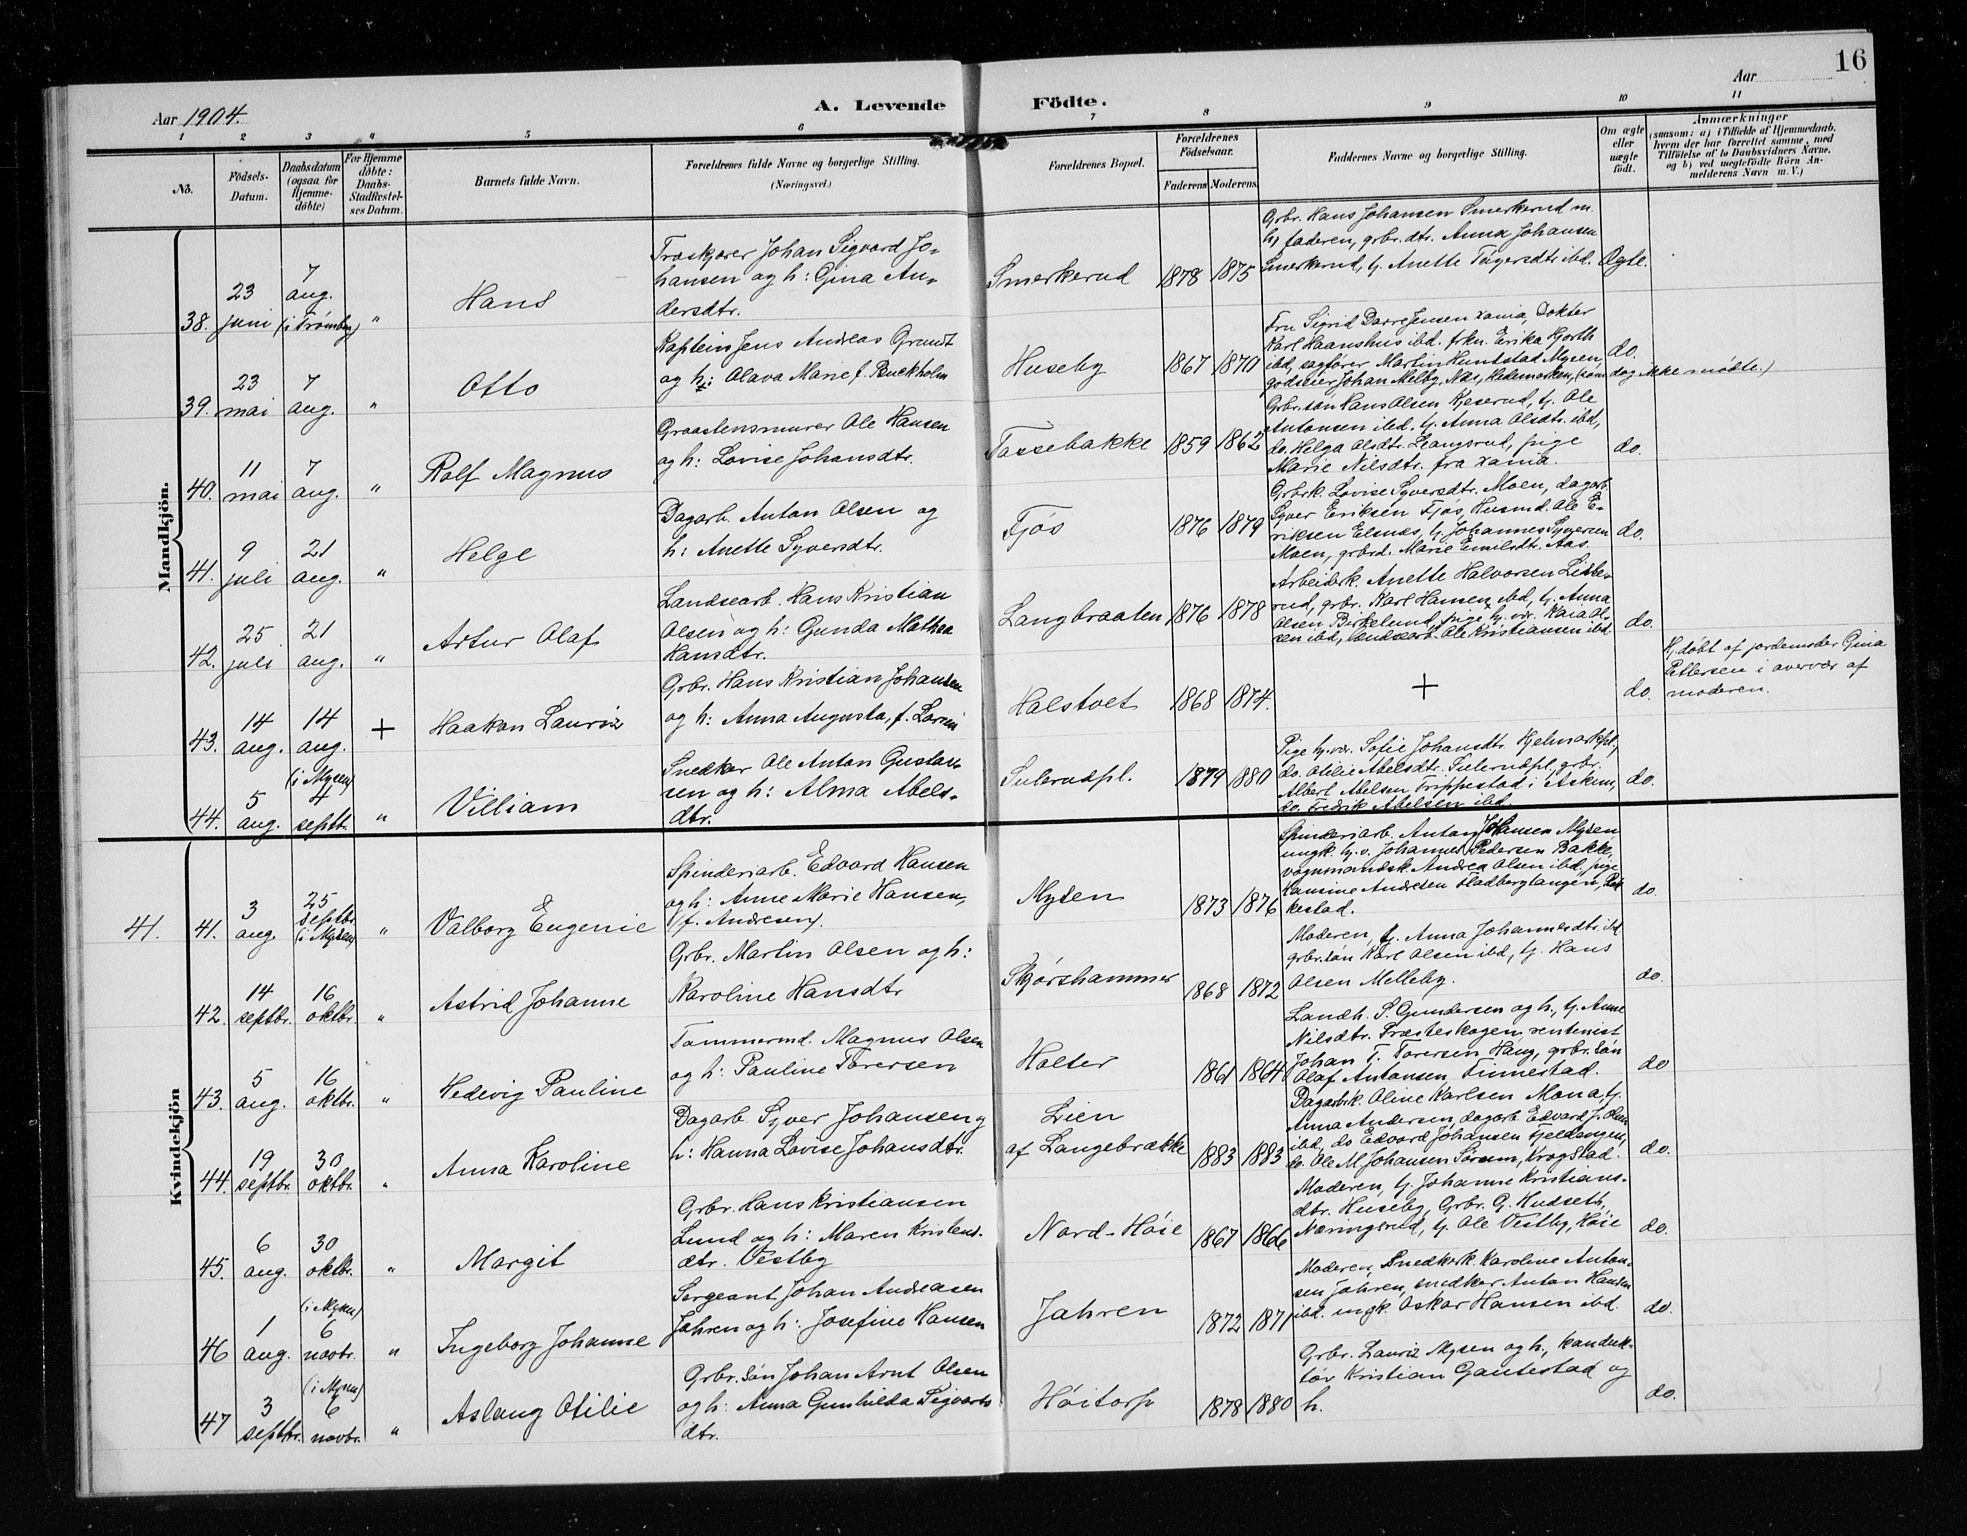 16
Aar 1904.
A. Levende Födte.
Aar
1 2 3 " 5 6 7 8 9 10 11
No.
Födsels-Datum.
Daabsdatum (ogsaa for Hjemme-döbte)
For Hjemme döbte: Daabs-Stadfæstel-ses Datum.
Barnets fulde Navn.
Forældrenes fulde Navne og borgerlige Stilling. (Næringsvei.)
Forældrenes Bopæl.
Forældrenes Födselsaar.
Faderens Moderens
Faddernes Navne og borgerlige Stilling.
Om ægte eller uægte födt.
Anmærkninger
(saasom: a) i Tilfælde af Hjemmedaab,
hvem der har forrettet samme, med
Tilföielse af to Daabsvidners Navne,
og b) ved uægtefödte Börn An-
melderens Navn m. V.)
Mandkjön.
38. 23 juni 7 aug. (i Trømborg) " Hans
Træskjærer Johan Sigvard Jo-
hansen og h: Gina An-
dersdtr.
Smerkerud 1878 1875
Grbr. Hans Johansen Smerkerud m.
h, faderen, grbr. dtr. Anna Johansen
Smerkerud, tj. Anette ibd.
Ægte.
39. 23 mai 7 aug. " Otto
Kaptein Jens Andreas Grandt
og h: Olava Marie f. Buckholm
Huseby 1867 1870
Fru Sigrid Darre Jensen Xania, Doktor
Karl Haanshus ibd. frkn. Erika Hjorth
ibd, sagfører Martin Hundstad Mysen,
godseier Johan Melby, Næs, Hedemarken, (som dog ikke mødte.)
do.
40. 11 mai 7 aug. " Rolf Magnus
Graastensmurer Ole Hansen
og h: Lovise Johansdtr.
Tassebakke 1859 1862
Grbr. søn Hans Olsen Kjeserud, tj. Ole
Antonsen ibd. tj. Anna Olsdtr. ibd,
do. Helga Olsdtr. Langsrud, pige
Marie Nilsdtr. fra Xania.
do.
41. 9 juli 21 aug. " Helge
Dagarb. Anton Olsen og
h: Anette Syversdtr.
Fjøs 1876 1879
Grbrk. Lovise Syversdtr. Moen, dagarb.
Syver Eriksen Fjøs, Husmd. Ole E-
riksen Elsnes, tj. Johannes Syversen
Moen, grbrd. Marie Emilsdtr. Aas.
do.
42. 25 juli 21 aug. " Artur Olaf
Landsearb. Hans Kristian
Olsen og h: Gunda Mathea
Hansdtr.
Langbraaten 1876 1878
Arbeiderk. Anette Halvorsen Litle-
rud, grbr. Karl Hansen ibd, tj. Anna
Olsen Birkelund, pige hj. vær. Kaia Ol-
sen ibd, landsearb. Ole Kristiansen ibd.
do.
43. 14 aug. 14 aug. + Haakon Lauriz
Grbr. Hans Kristian Johansen
og h: Anna Augusta, f.
Halstvet 1868 1874.
+
do.
Hj. døbt af jordemoder Gina
Pettersen i overvær af
moderen.
44. 5 aug. (i Mysen) 4 septbr. " Villiam
Snedker Ole Anton Gustav-
sen og h: Alma Abels-
dtr.
Sulerudpl. 1879 1880
Pige hj. vær. Sofie Johansdtr. Hjelmarkpl,
do. Otilie Abelsdtr. Sulerudpl, grbr.
Albert Abelsen Trippestad i Askim,
do. Fredrik Abelsen ibd.
do.
Kvindekjön
41. 41. 3 aug. 25 septbr. (i Mysen) " Valborg Eugenie
Spinderiarb. Edvard Hansen
og h: Anne Marie Hansen,
(f. Andresen).
Mysen 1873 1876
Spinderiarb. Anton Johansen Mysen
ungk. hj. v. Johannes Pedersen Bakke,
vognmandsk. Andrea Olsen ibd, pige
Hansine Andresen Fladbergtangen, Rak-
kestad.
do.
42. 14 septbr. 16 oktbr. " Astrid Johanne
Grbr. Martin Olsen og h:
Karoline Hansdtr
Skjørshammer 1868 1872
Moderen, tj. Anna Johannesdtr. ibd
grbr. søn Karl Olsen ibd, tj. Hans
Olsen Melleby.
do.
43. 5 aug. 16 oktbr. " Hedevig Pauline
Tømmermd. Magnus Olsen
og h: Pauline Torersen
Holter 1861 1864
Landh. S. Gundersen og h., tj. Anne
Nilsdtr. Præsteskogen, rentenist
Johan T. Torersen Haug, grbr. søn
Olaf Antonsen Finnestad.
do
44. 19 septbr. 30 oktbr. " Anna Karoline
Dagarb. Syver Johansen og
h: Hanna Lovise Johansdtr.
Lien
af Langebrække 1883 1883
Dagarbk. Oline Karlsen Mona, tj.
Anna Andersen, dagarb. Edvard J. Olsen
ibd, do Edvard Johansen Fjeldengen,
do. Ole M Johansen Sørum, Krogstad.
do.
45. 6 aug. 30 oktbr. " Margit
Grbr. Hans Kristiansen
Lund og h: Maren Kristens-
dtr. Vestby
Nord-Høie 1867 1866
Moderen, tj. Johanne Kristians-
dtr. Huseby, Grbr. G. Hudseth,
Næringsrud, tj. Ole Vestby, Høie
do.
46 1 aug. (i Mysen) 6 novbr. " Ingeborg Johanne
Sergeant Johan Andreasen
Jahren og h: Josefine Hansen
Jahren 1872 1871
Moderen, Snedkerk. Karoline Anton-
sen Jahren, snedker Anton Hansen
ibd. ungk. Oskar Hansen ibd.
do.
47 3 septbr. (i Mysen) 6 novbr. " Aslaug Otilie
Grbr. søn Johan Arnt Olsen
og h: Anna Gunhilda Sigvarts
dtr.
Høitorp 1878 1880
Grbr. Lauriz Mysen og h., konduk-
tør Kristian Gautestad og
h.
do.